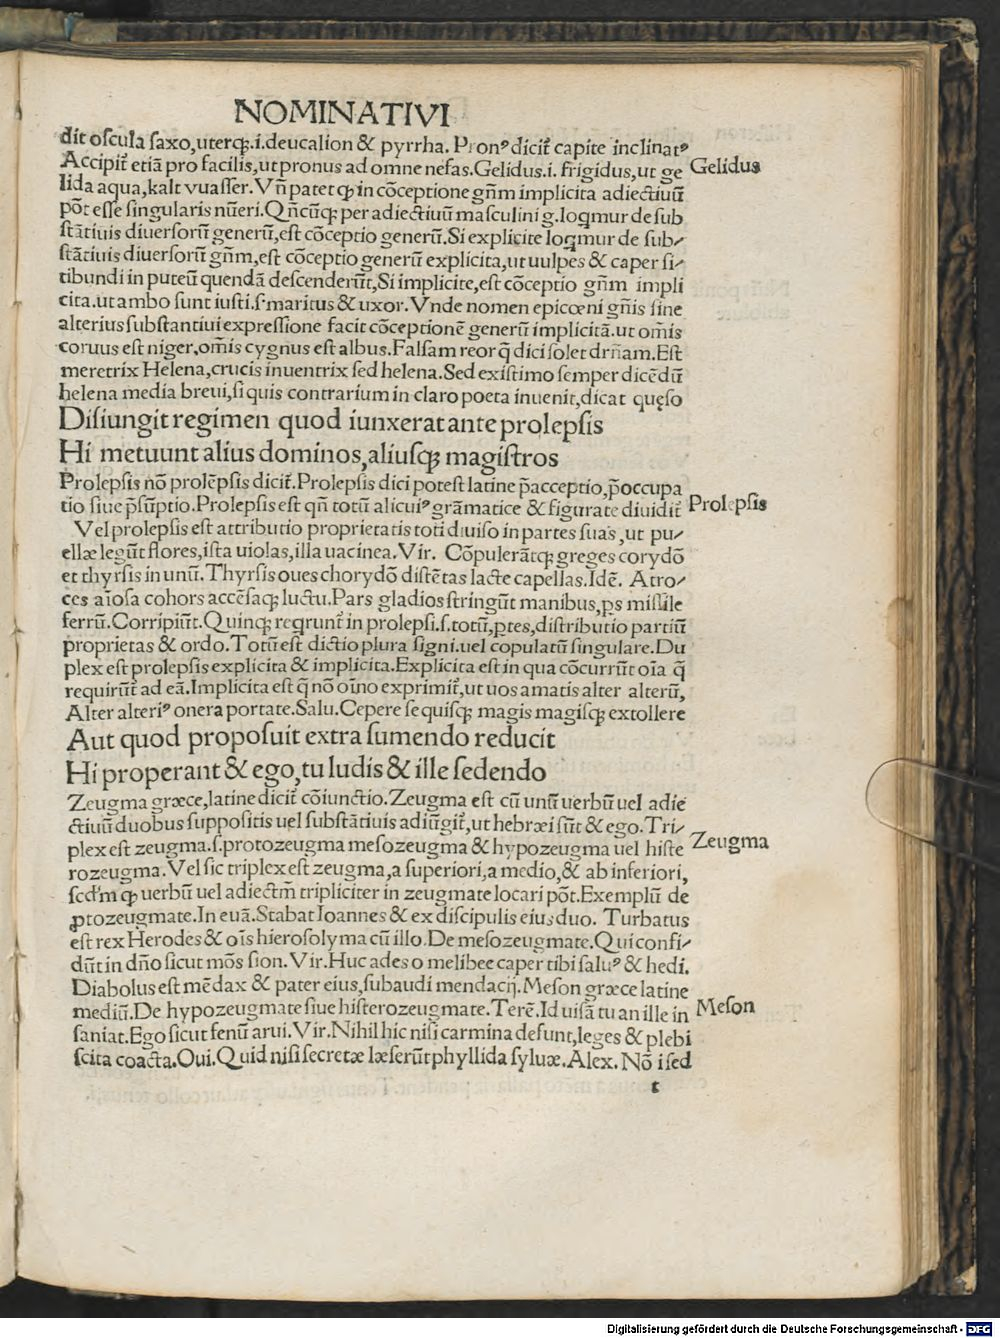 NOMINATIVI
dit oſcula ſaxo,uterqꝫ.i.deucalion & pyrrha. Pronꝰ dicit̃ capite inclinatꝰ
Accipit̃ etiã pro facilis,ut pronus ad omne nefas.Gelidus.i. frigidus,ut ge
Gelidus
lida aqua,kalt vuaſſer.Vñ patet ꝙ in cõceptione gñm implicita adiectiuũ
põt eſſe ſingularis nũeri.Qñcũqꝫ per adiectiuũ maſculini g.loqmur de ſub
ſtãtiuis diuerſorũ generũ,eſt cõceptio generũ.Si explicite loqmur de ſub⸗
ſtãtiuis diuerſorũ gñm,eſt cõceptio generũ explicita,ut uulpes & caper ſi⸗
tibundi in puteũ quendã deſcenderũt,Si implicite,eſt cõceptio gñm impli
cita.ut ambo ſunt iuſti.ſ.maritus & uxor. Vnde nomen epicœni gñis ſine
alterius ſubſtantiui expreſſione facit cõceptionẽ generũ implicitã.ut om̃is
coruus eſt niger,om̃is cygnus eſt albus.Falſam reor q̃ dici ſolet drñam.Eſt
meretrix Helena,crucis inuentrix ſed helena.Sed exiſtimo ſemper dicẽdũ
helena media breui,ſi quis contrarium in claro poeta inuenit,dicat quęſo
Diſiungit regimen quod iunxerat ante prolepſis
Hi metuunt alius dominos,aliuſqꝫ magiſtros
Prolepſis nõ prolẽpſis dicit̃.Prolepſis dici poteſt latine p̃acceptio,p̃occupa
tio ſiue p̃ſũptio.Prolepſis eſt qñ totũ alicuiꝰ grãmatice & figurate diuidit̃
Prolepſis
Vel prolepſis eſt attributio proprietatis toti diuiſo in partes ſuas,ut pu⸗
ellæ legũt flores,iſta uiolas,illa uacinea.Vir. Cõpulerãtqꝫ greges corydõ
et thyrſis in unũ.Thyrſis oues chorydõ diſtẽtas lacte capellas.Idẽ. Atro⸗
ces aĩoſa cohors accẽſaqꝫ luctu.Pars gladios ſtringũt manibus,ꝑs miſſile
ferrũ.Corripiũt.Quinqꝫ reqrunt̃ in prolepſi.ſ.totũ,ꝑtes,diſtributio partiũ
proprietas & ordo.Totũ eſt dictio plura ſigni.uel copulatũ ſingulare.Du
plex eſt prolepſis explicita & implicita.Explicita eſt in qua cõcurrũt oĩa q̃
requirũt̃ ad eã.Implicita eſt q̃ nõ oĩno exprimit̃,ut uos amatis alter alterũ,
Alter alteriꝰ onera portate.Salu.Cepere ſe quiſqꝫ magis magiſqꝫ extollere
Aut quod propoſuit extra ſumendo reducit
Hi properant & ego,tu ludis & ille ſedendo
Zeugma græce,latine dicit̃ cõiunctio.Zeugma eſt cũ unũ uerbũ uel adie
ctiuũ duobus ſuppoſitis uel ſubſtãtiuis adiũgit̃,ut hebræi ſũt & ego.Tri⸗
plex eſt zeugma.ſ.protozeugma meſozeugma & hypozeugma uel hiſte
Zeugma
rozeugma.Vel ſic triplex eſt zeugma,a ſuperiori,a medio,& ab inferiori,
ſcd̃m ꝙ uerbũ uel adiectm̃ tripliciter in zeugmate locari põt.Exemplũ de
ꝓtozeugmate.In euã.Stabat Ioannes & ex diſcipulis eius duo. Turbatus
eſt rex Herodes & oĩs hieroſolyma cũ illo.De meſozeugmate.Qui confi⸗
dũt in dño ſicut mõs ſion.Vir.Huc ades o melibee caper tibi ſaluꝰ & hedi.
Diabolus eſt mẽdax & pater eius,ſubaudi mendacij.Meſon græce latine
mediũ.De hypozeugmate ſiue hiſterozeugmate.Terẽ.Id uiſã tu an ille in
Meſon
ſaniat.Ego ſicut fenũ arui.Vir.Nihil hic niſi carmina deſunt,leges & plebi
ſcita coacta.Oui.Quid niſi ſecretæ læſerũt phyllida ſyluæ.Alex. Nõ i ſed
t
Digitalisierung gefördert durch die Deutsche Forschungsgemeinschaft - DFG